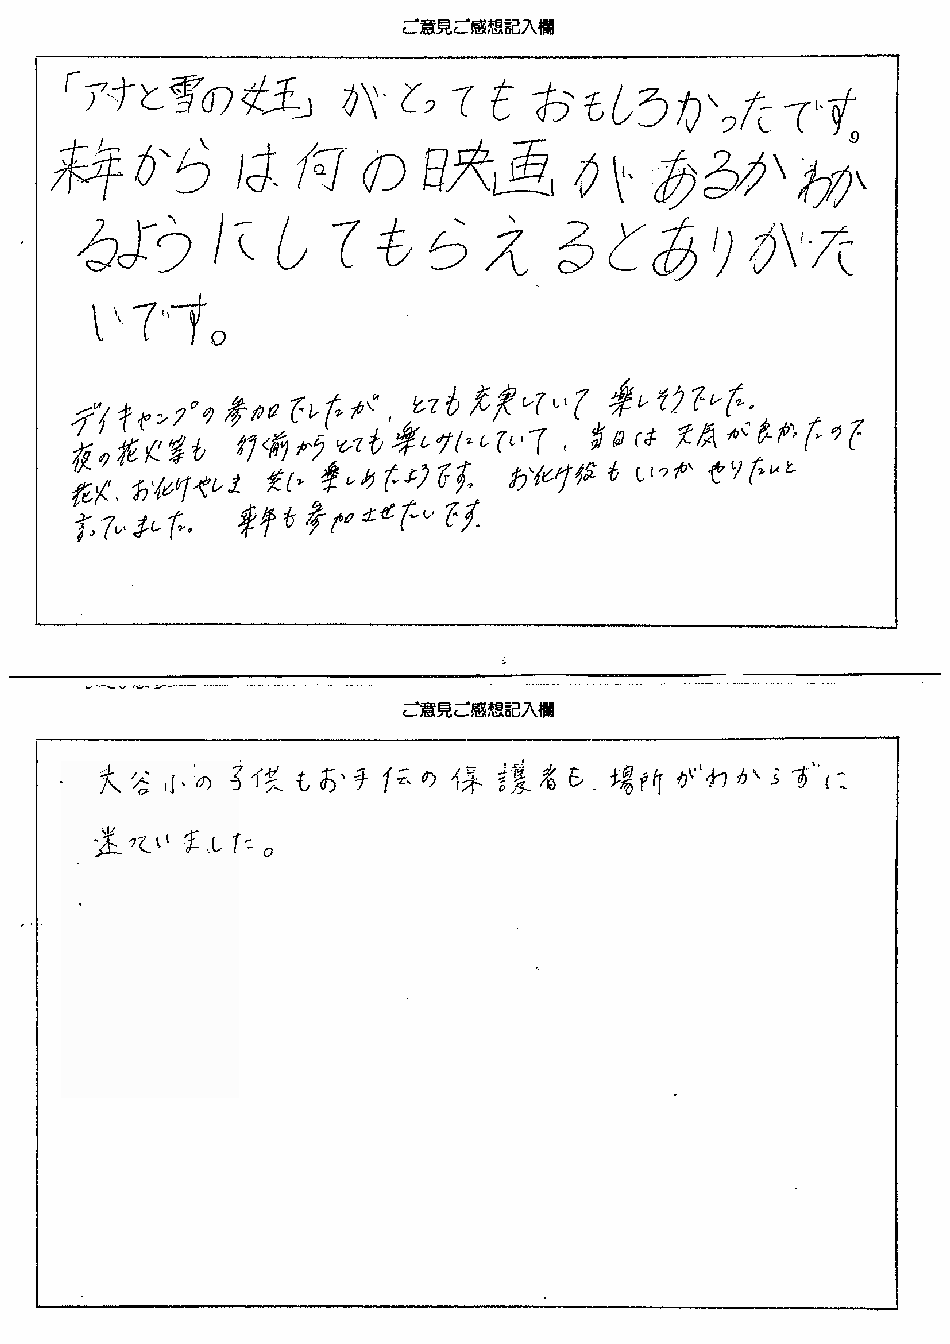 ご意見ご感想記入欄
「アナと雪の女王」がとってもおもしろかったです。
来年からは何の映画があるかわか
るようにしてもらえるとありがた
いです。
デイキャンプの参加でしたが、とても充実していて楽しそうでした。
夜の花火等も行く前からとても楽しみにしていて、当日は天気が良かったので
花火、お化けやしき共に楽しめたようです。お化け役もいつかやりたいと
言っていました。来年も参加させたいです。
ご意見ご感想記入欄
大谷小の子供もお手伝の保護者も、場所がわからずに
迷っていました。